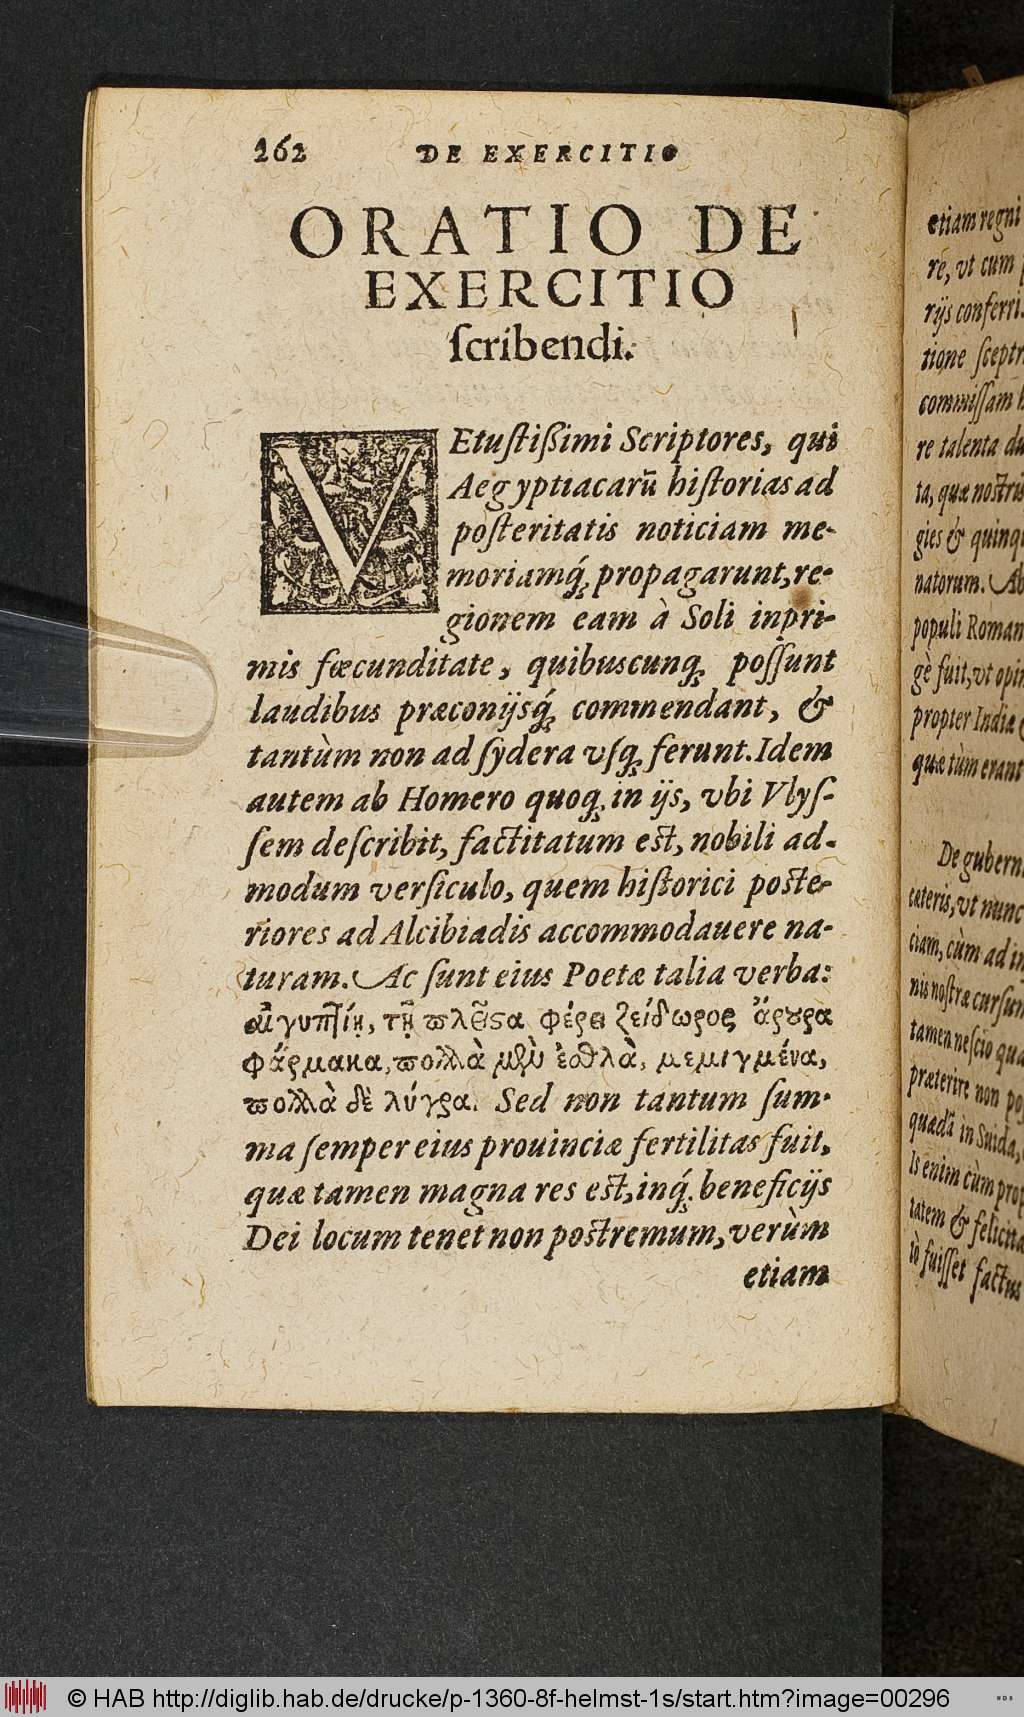 262 DE EXERCITIO
ORATIO DE
EXERCITIO
ſcribendi.
VEtuſtißimi Scriptores, qui
Aegyptiacarũ hiſtorias ad
poſteritatis noticiam me-
moriamq́ꝫ propagarunt, re-
gionem eam à Soli inpri-
mis fœcunditate, quibuscunqꝫ poſſunt
laudibus præconijsq́ꝫ commendant, &
tantùm non ad ſydera vſqꝫ ferunt. Idem
autem ab Homero quoqꝫ in ijs, vbi Vlyſ-
ſem deſcribit, factitatum est, nobili ad-
modum verſiculo, quem hiſtorici poste-
riores ad Alcibiadis accommodauere na-
turam. Ac ſunt eius Poetæ talia verba:
αἰγυπτίη, τῇ πλεῖϛα φέρει ζείδωρος ἄρȣρα
φάρμακα, πολλὰ μὲν ἐσθλὰ, μεμιγμένα,
πολλὰ δὲ λύγρα. Sed non tantum ſum-
ma ſemper eius prouinciæ fertilitas fuit,
quæ tamen magna res est, inq́ꝫ beneficijs
Dei locum tenet non postremum, verùm
etiam
etiam regni
re, vt cum
rijs conferri.
tione ſceptr
commiſſam
re talenta
ta, quæ nostris
gies & quinqu
natorum. Ab
populi Roman
gè fuit, vt opin
propter Indiæ
quæ tùm erant
De gubern
cæteris, vt nunc
ciam, cùm ad in
nis nostræ curſum
tamen neſcio qua
præterire non
quædã in Suida,
Is enim cùm prop
tatem & felicita
iò fuiſſet factus
© HAB http://diglib.hab.de/drucke/p-1360-8f-helmst-1s/start.htm?image=00296